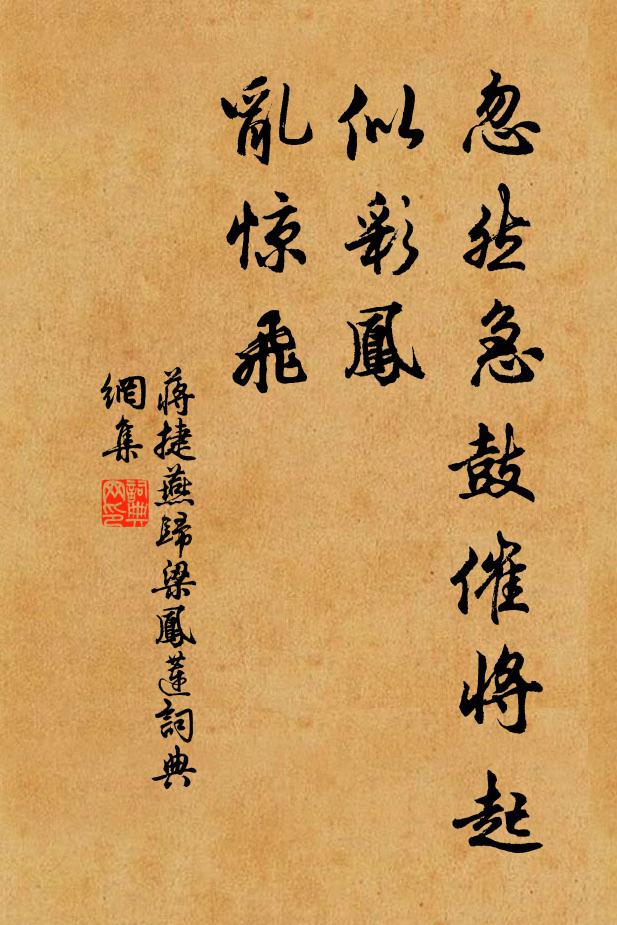 忽然急鼓催將起
似彩鳳
亂惊飛
蔣捷燕歸梁鳳蓮詞典
網集
詞典
网印